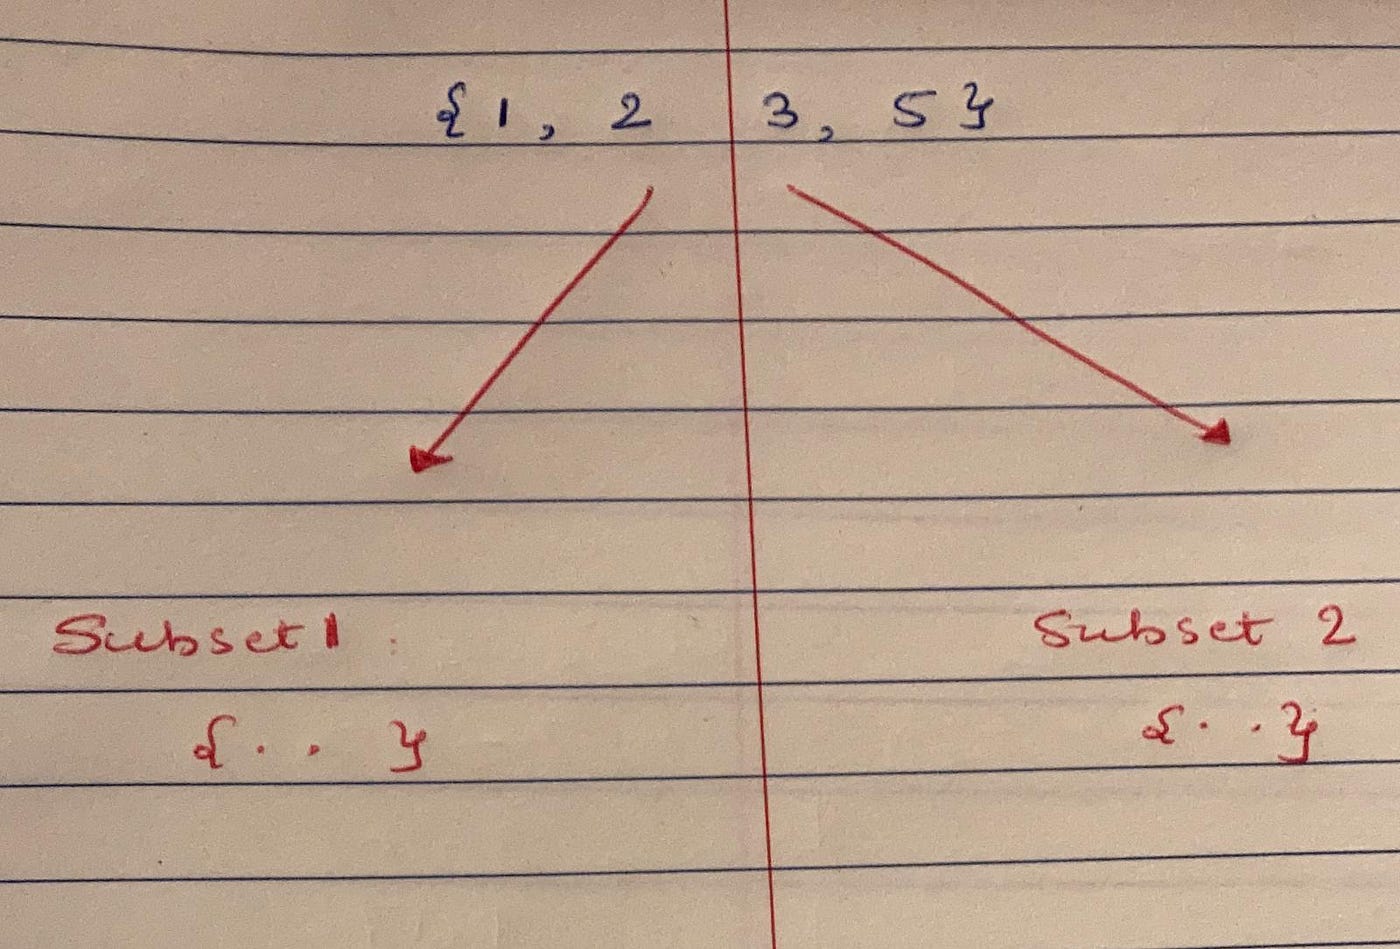 { 1, 2 3, 5 }
Subset 1 : Subset 2
{ . . } { . . }